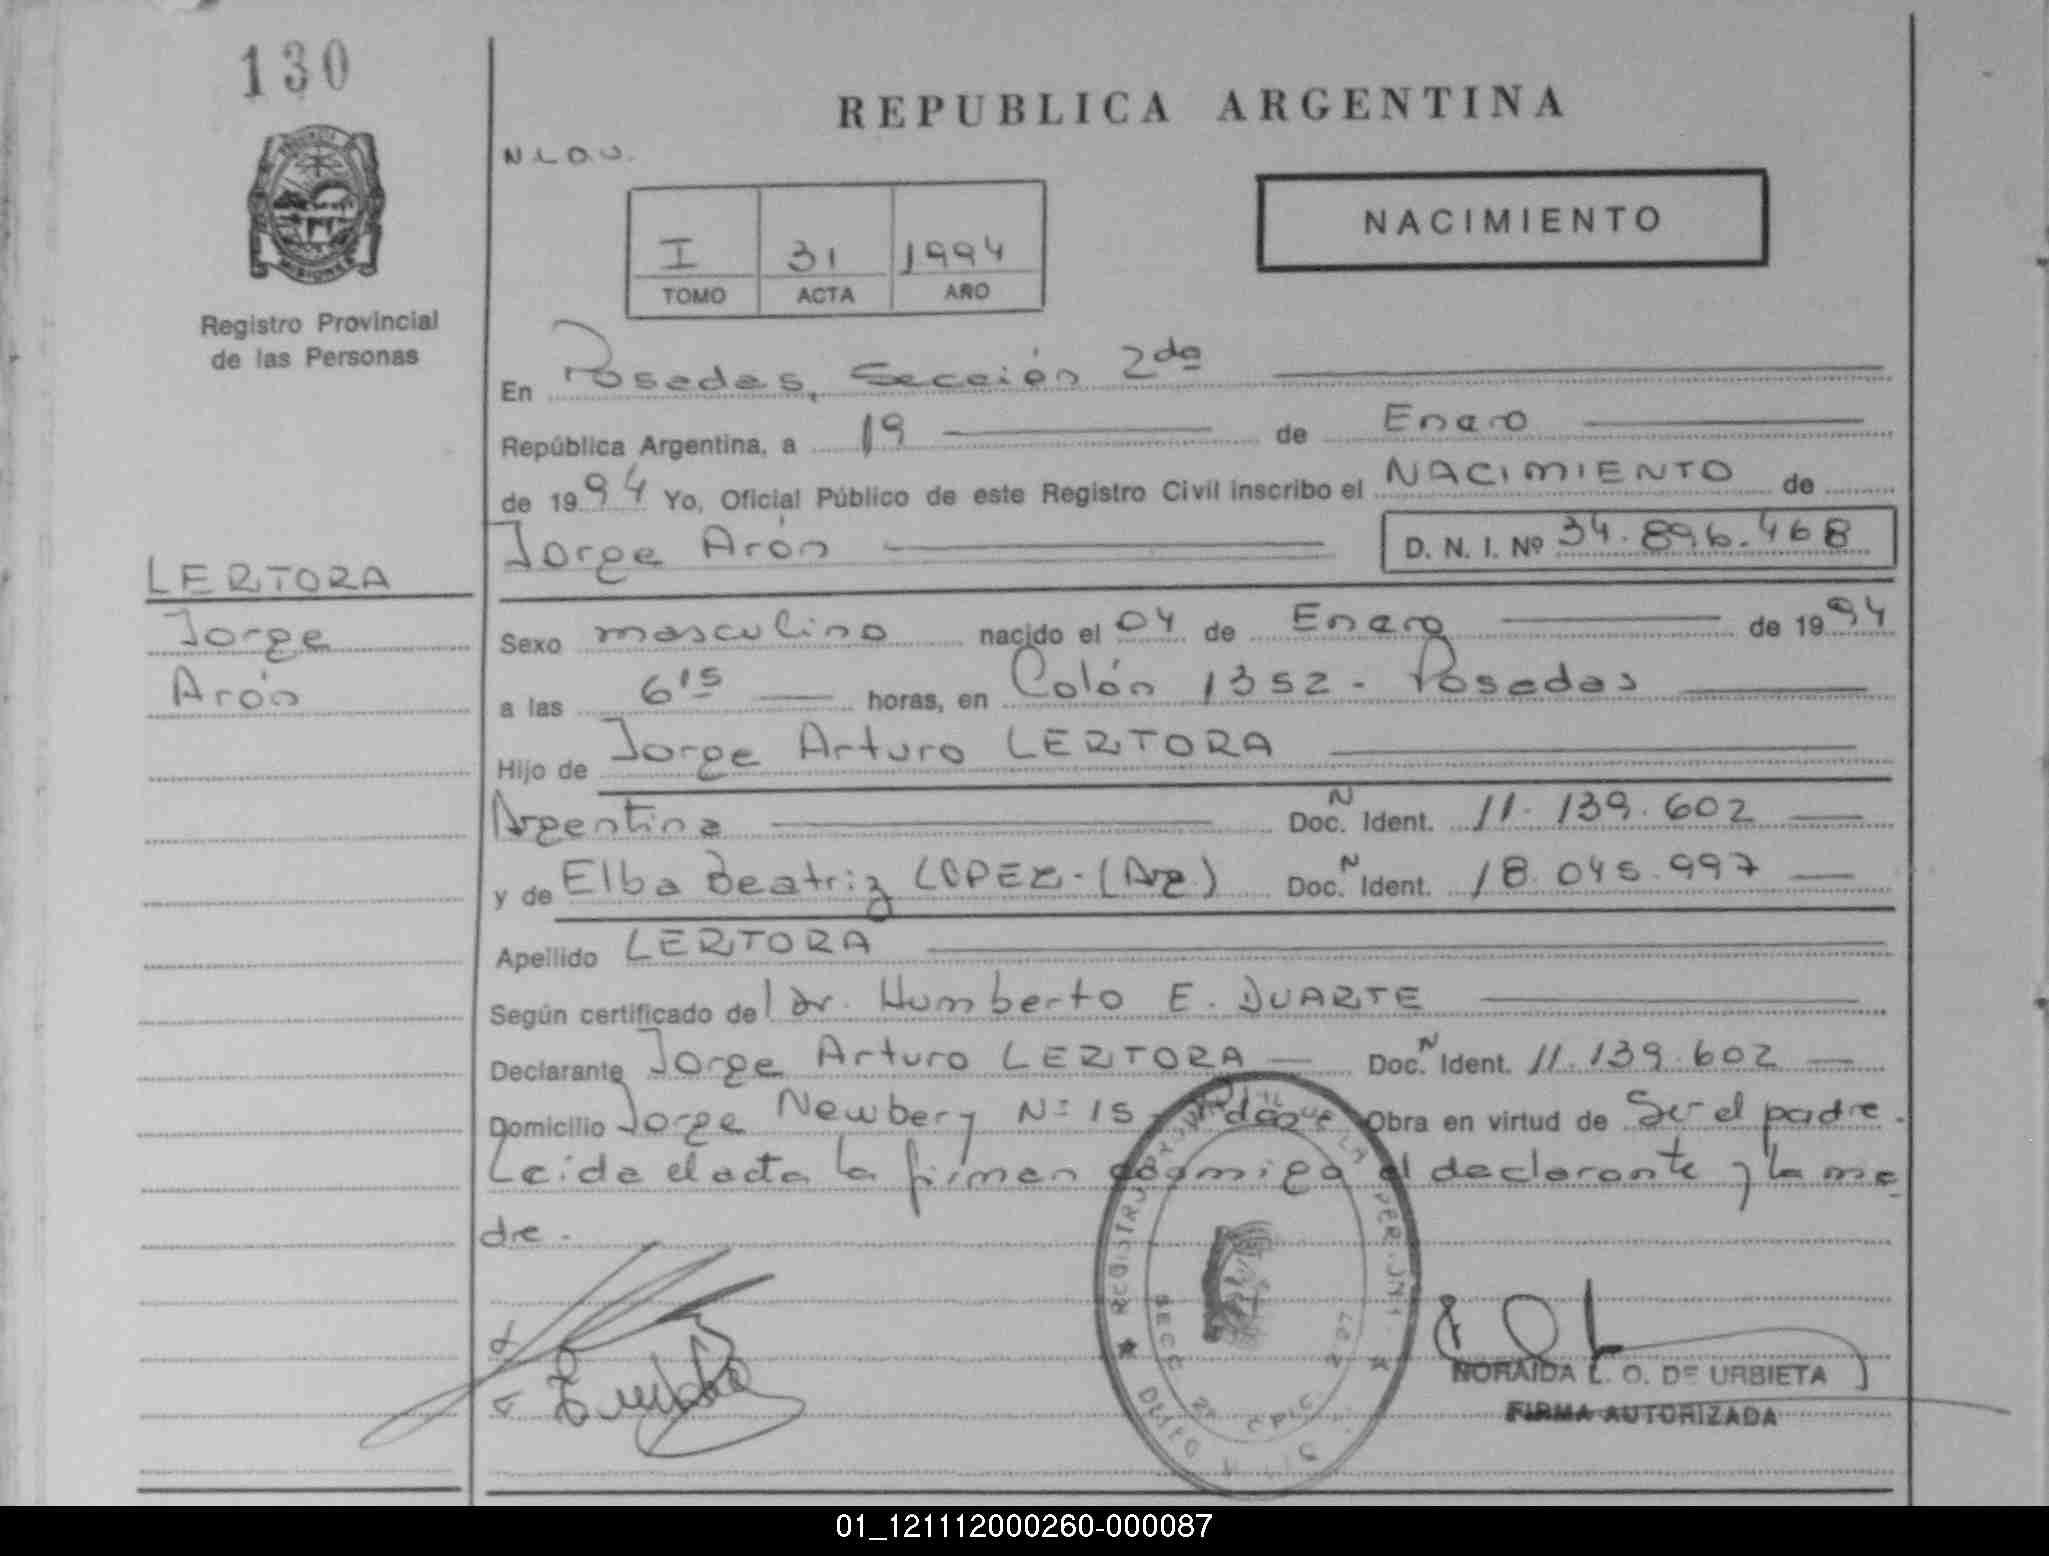 130
REPUBLICA ARGENTINA
N.L.O.U.
NACIMIENTO
I 31 1994
TOMO ACTA AÑO
Registro Provincial
de las Personas
En Posadas, Sección 2da
República Argentina, a 19 de Enero
de 1994 Yo, Oficial Público de este Registro Civil inscribo el NACIMIENTO de
Jorge Arón D. N. I. Nº 34.896.468
LERTORA
Jorge
Arón
Sexo masculino nacido el 04 de Enero de 1994
a las 6 15 horas, en Colón 1352 - Posadas
Hijo de Jorge Arturo LERTORA
Argentina Doc. N Ident. 11.139.602
y de Elba Beatriz LOPEZ - (Arg.) Doc. N Ident. 18.045.997
Apellido LERTORA
Según certificado del dr. Humberto E. DUARTE
Declarante Jorge Arturo LERTORA Doc. N Ident. 11.139.602
Domicilio Jorge Newbery Nº 15 Obra en virtud de Ser el padre.
Leida el acta la firman conmigo el declarante y la ma
dre.
SECC 2a
NORAIDA L. O. DE URBIETA
FIRMA AUTORIZADA
01_121112000260-000087